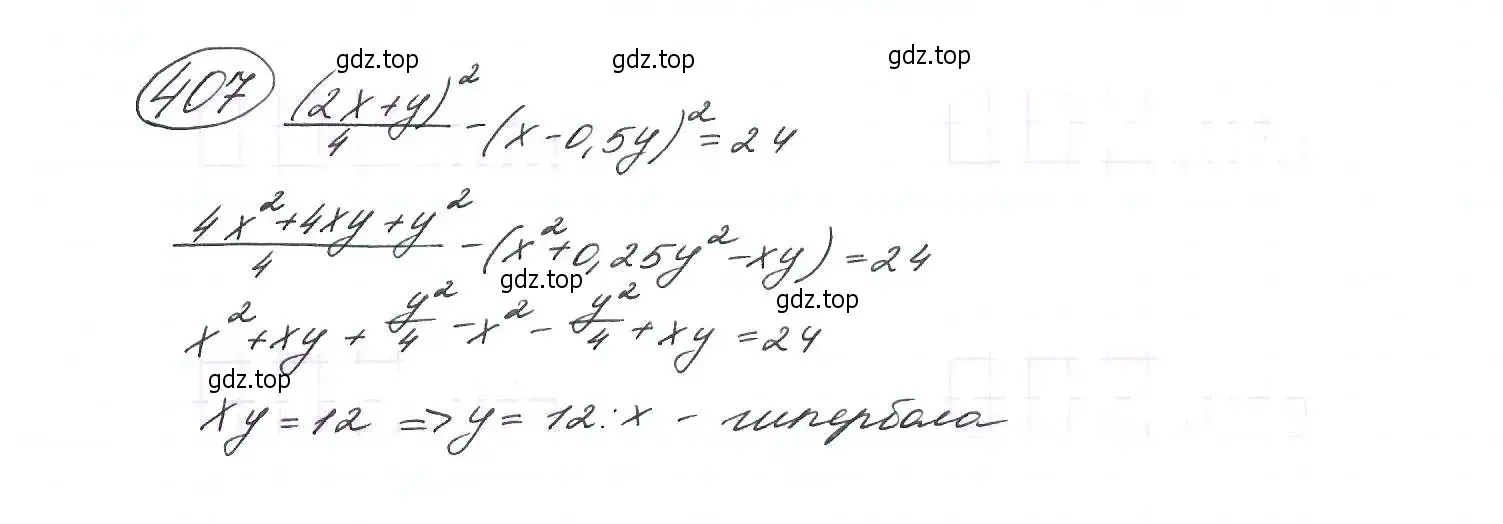 gdz.top gdz.top gdz.top
407 (2x+y)²/4 - (x-0,5y)² = 24
4x²+4xy+y²/4 - (x²+0,25y²-xy) = 24
gdz.top gdz.top
x²+xy+y²/4-x²-y²/4+xy=24
gdz.top
xy=12 => y=12:x - гипербола